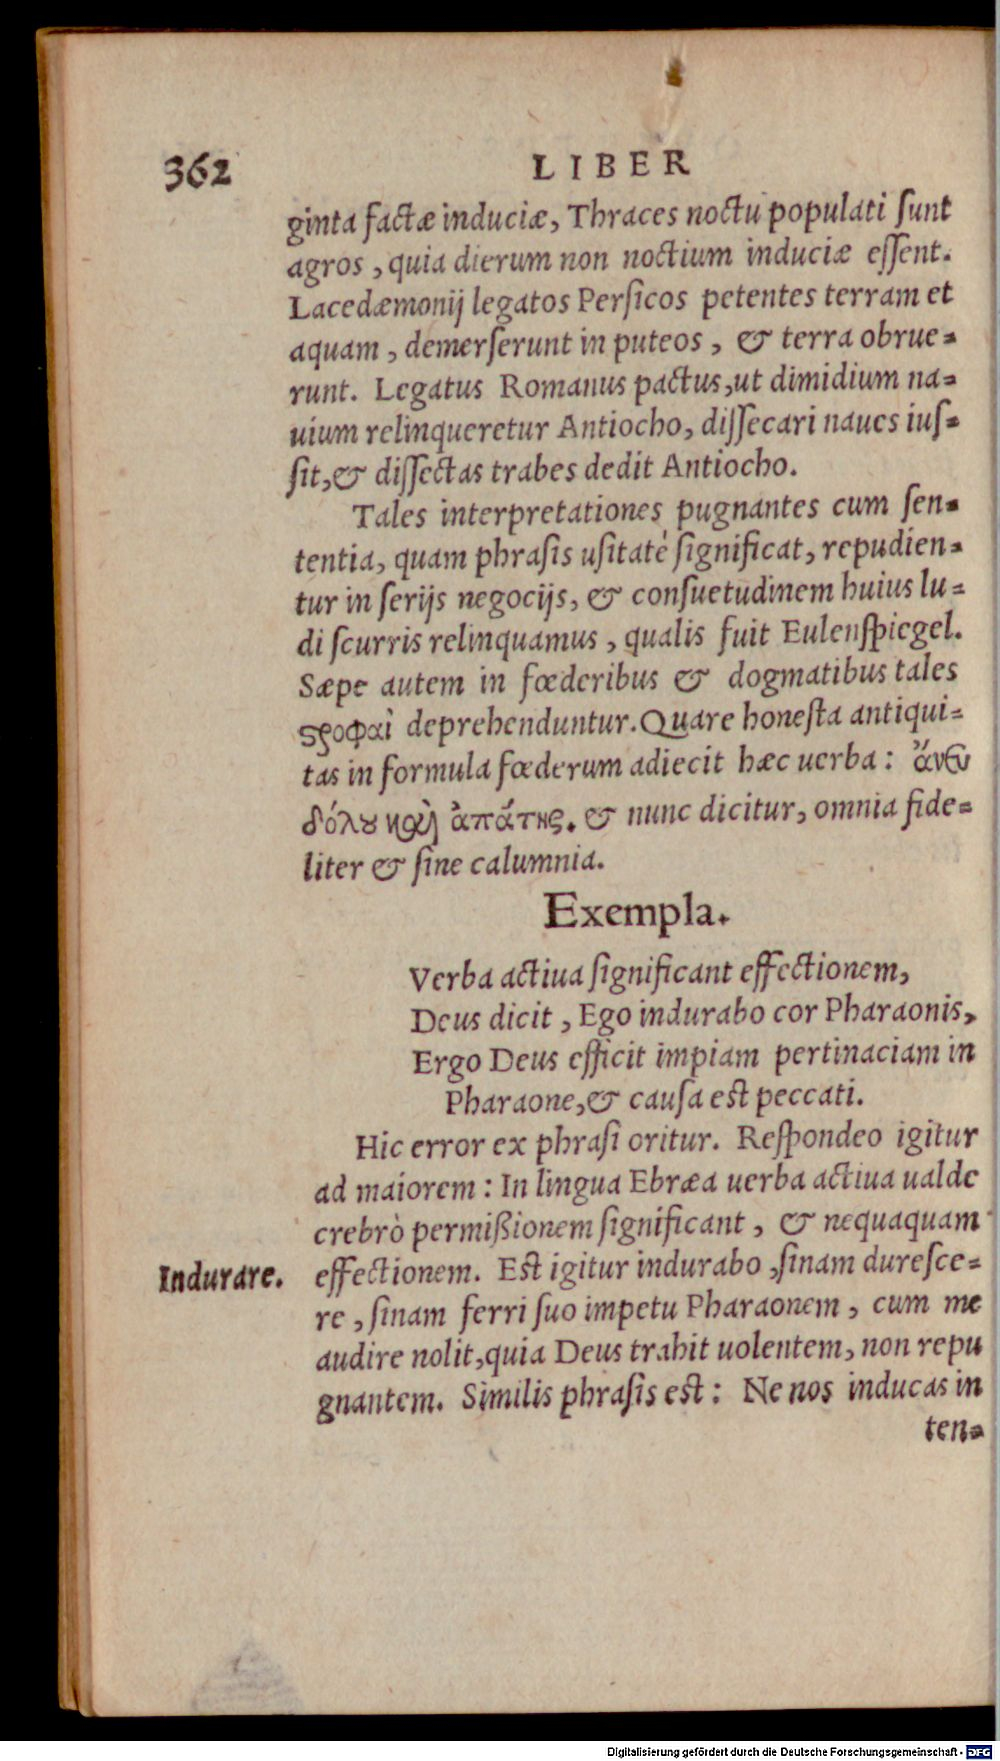 362 LIBER
ginta factæ induciæ, Thraces noctu populati ſunt
agros, quia dierum non noctium induciæ eſſent.
Lacedæmonij legatos Perſicos petentes terram et
aquam, demerſerunt in puteos, & terra obrue-
runt. Legatus Romanus pactus, ut dimidium na-
uium relinqueretur Antiocho, diſſecari naues iuſ-
ſit, & diſſectas trabes dedit Antiocho.
Tales interpretationes pugnantes cum ſen-
tentia, quam phraſis uſitatè ſignificat, repudien-
tur in ſerijs negocijs, & conſuetudinem huius lu-
di ſcurris relinquamus, qualis fuit Eulenſpiegel.
Sæpe autem in fœderibus & dogmatibus tales
ϛροφαὶ deprehenduntur. Quare honeſta antiqui-
tas in formula fœderum adiecit hæc uerba: ἄνευ
δόλου καὶ ἀπάτης. & nunc dicitur, omnia fide-
liter & ſine calumnia.
Exempla.
Verba actiua ſignificant effectionem,
Deus dicit, Ego indurabo cor Pharaonis,
Ergo Deus efficit impiam pertinaciam in
Pharaone, & cauſa est peccati.
Hic error ex phraſi oritur. Reſpondeo igitur
ad maiorem: In lingua Ebræa uerba actiua ualde
crebrò permißionem ſignificant, & nequaquam
Indurare. effectionem. Est igitur indurabo, ſinam dureſce-
re, ſinam ferri ſuo impetu Pharaonem, cum me
audire nolit, quia Deus trahit uolentem, non repu
gnantem. Similis phraſis est: Ne nos inducas in
ten-
Digitalisierung gefördert durch die Deutsche Forschungsgemeinschaft - DFG